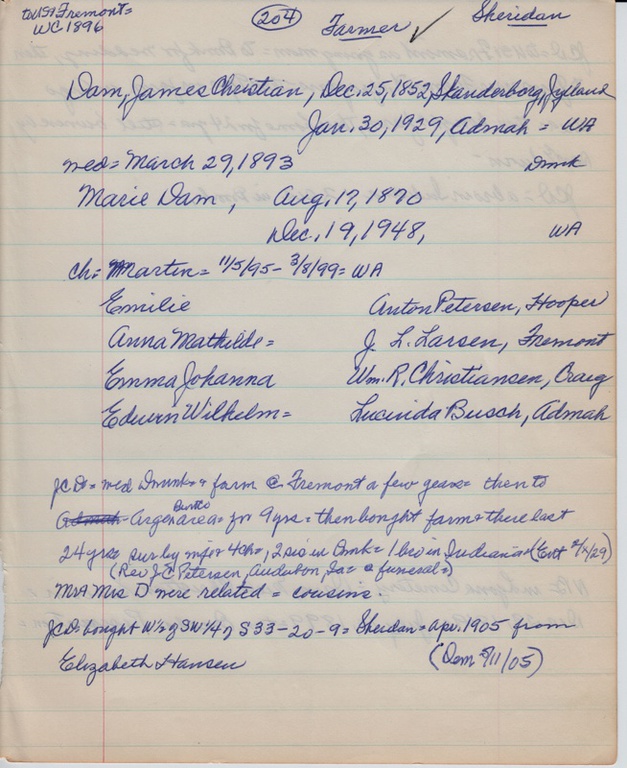 to USA Fremont=
WC 1896
204
Farmer ✓
Sheridan
Dam, James Christian, Dec. 25, 1852, Skanderborg, Jylland
Jan. 30, 1929, Admah = WA
wed = March 29, 1893 Dmk
Marie Dam, Aug. 17, 1870
Dec. 19, 1948, WA
ch: Martin = 11/5/95 - 3/8/99 = WA
Emilie Anton Petersen, Hooper
Anna Mathilde = J. L. Larsen, Fremont
Emma Johanna Wm. R. Christiansen, Craig
Edwin Wilhelm = Lucinda Busch, Admah
JCD = wed Dmk = + farm @ Fremont a few years = then to
Admah Argo area = for 9 yrs = then bought farm + there last
Burtco
24 yrs = sur by wife + 4 ch =, 2 sis in Dmk = 1 bro in Indiana = (Ent
(Rev J.C. Petersen, Audubon, Ia = funeral =)
Mr & Mrs D were related = cousins
JCD = bought W 1/2 of SW 1/4 of S 33-20-9 = Sheridan = Apr. 1905 from
Elizabeth Hansen (Dem 5/11/05)